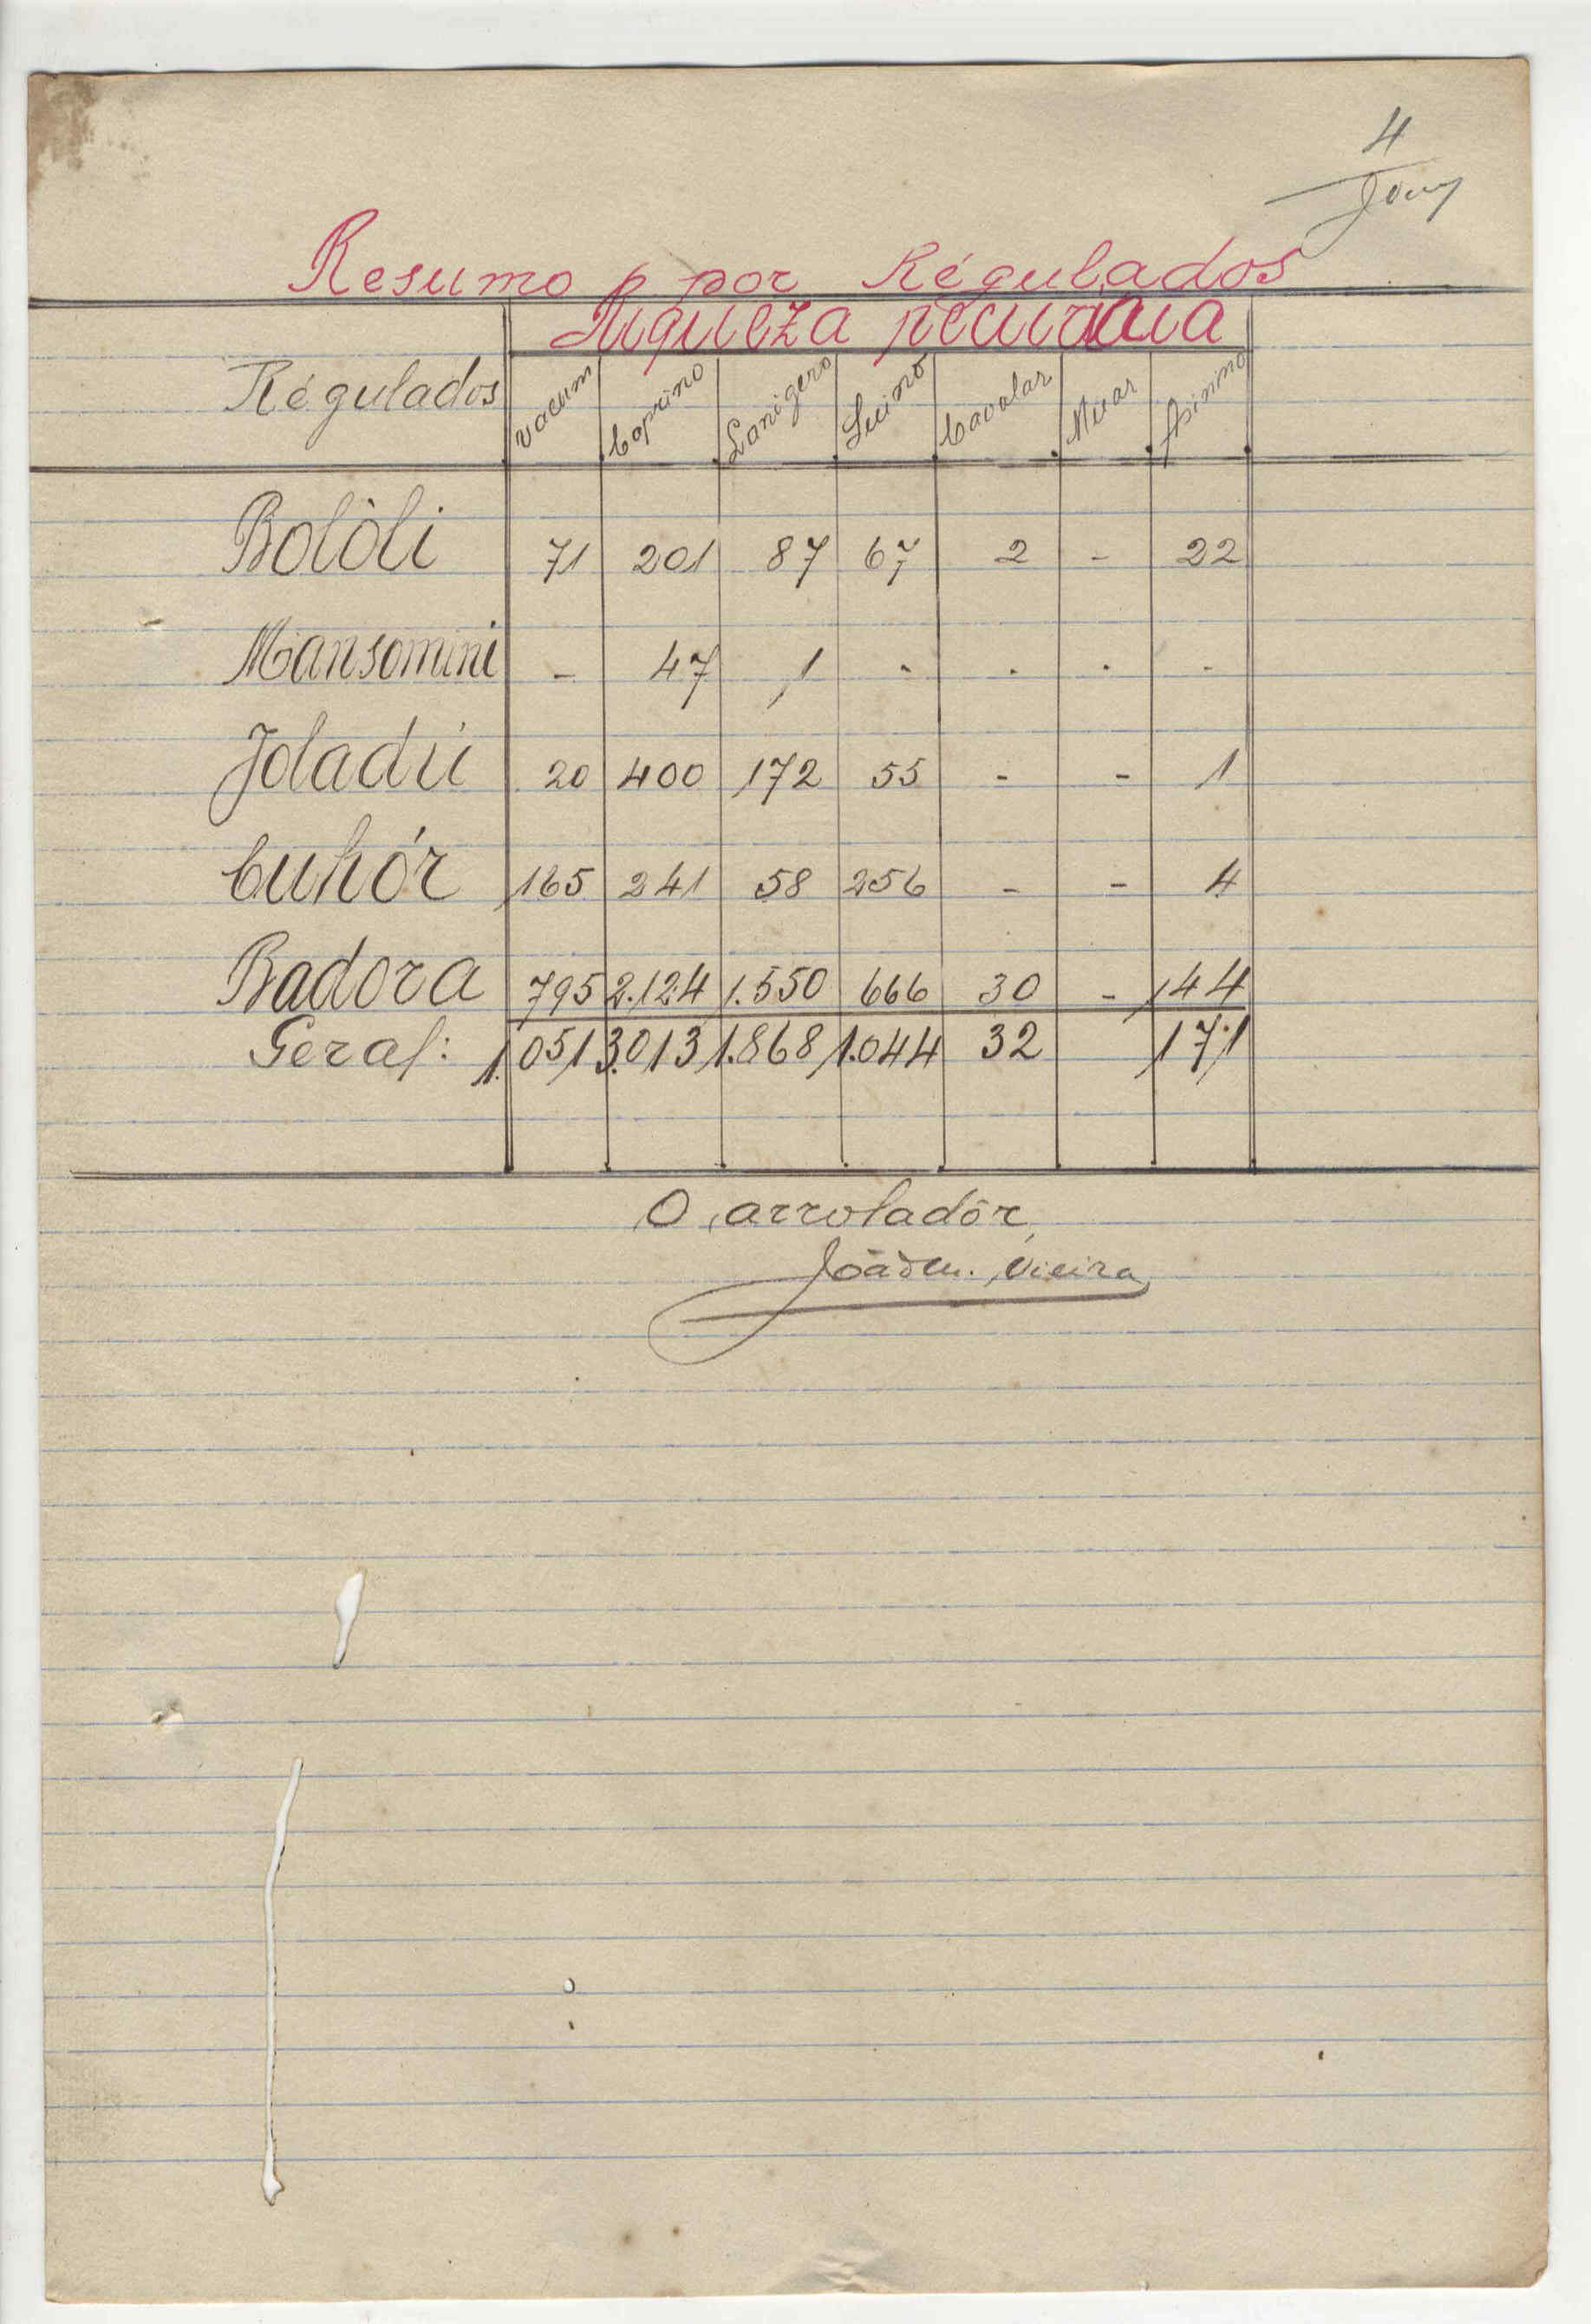 4
Resumo por Régulados
Riqueza pecuraia
Régulados vacum Caprino Lanigero Suino Cavalar Muar Asinino
Bolóli 71 201 87 67 2 - 22
Mansomini - 47 1 - - - -
Joladú 20 400 172 55 - - 1
Cuhór 165 241 58 256 - - 4
Badora 795 2.124 1.550 666 30 - 144
Geral: 1.051 3.013 1.868 1.044 32 171
O arroladôr,
João M. Vieira